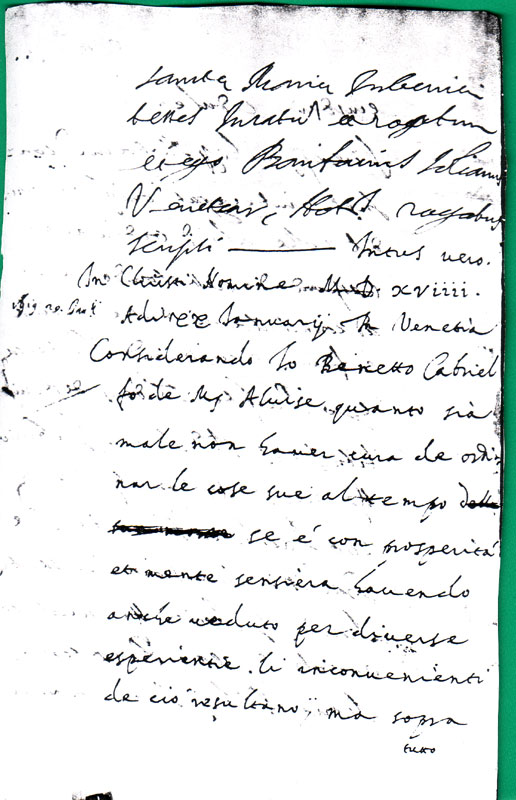 Sancta Maria Iubenici
testes Iuratus et rogatum
et ego Bonifacius Solianus
Venetiar, Not.s rogatus
scripsi — Intus vero.
In Christi Nomine M D XVIIII.
Adi xx Ianuarij In Venetia
Considerando Io Benetto Cabriel
fo de Mr Alvise quanto sia
male non haver cura de ordi
nar le cose sue al tempo
se é con prosperità
et mente sensiera havendo
anche veduto per diverse
esperientie li inconvenienti
de ció resultano, ma sopra
tutto